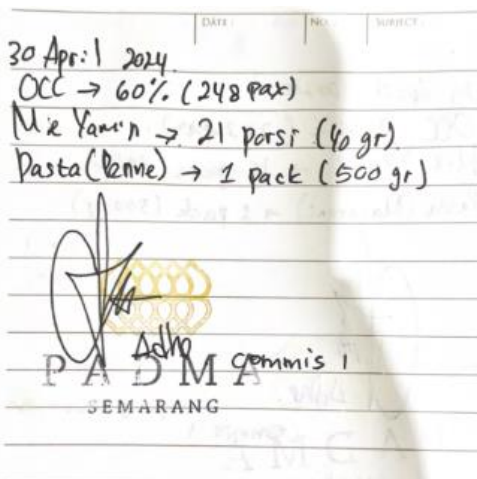 DATE : NO : SUBJECT :
30 April 2024
OCC → 60% (248 pax)
Mie Yamin → 21 porsi (40 gr)
Pasta (Penne) → 1 pack (500 gr)
Adho
commis 1
PADMA
SEMARANG